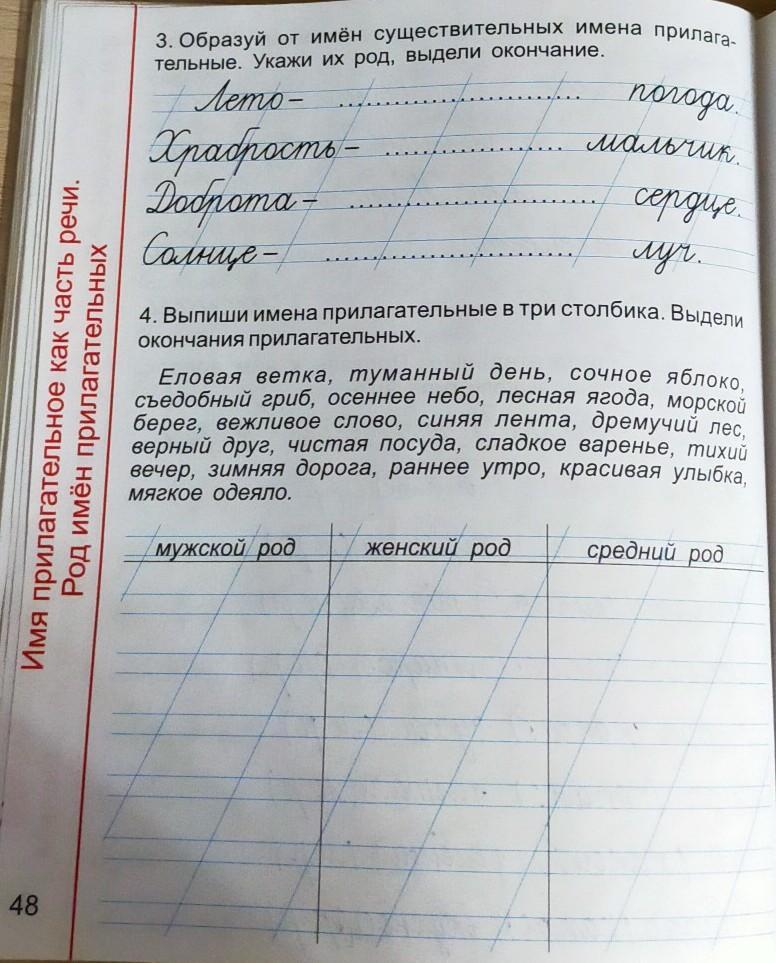 3. Образуй от имён существительных имена прилага-
тельные. Укажи их род, выдели окончание.
Лето – .............................. погода.
Храбрость – ...................... мальчик.
Доброта – .............................. сердце.
Солнце – .............................. луч.
4. Выпиши имена прилагательные в три столбика. Выдели
окончания прилагательных.
Еловая ветка, туманный день, сочное яблоко,
съедобный гриб, осеннее небо, лесная ягода, морской
берег, вежливое слово, синяя лента, дремучий лес,
верный друг, чистая посуда, сладкое варенье, тихий
вечер, зимняя дорога, раннее утро, красивая улыбка,
мягкое одеяло.
мужской род женский род средний род
Имя прилагательное как часть речи.
Род имён прилагательных
48